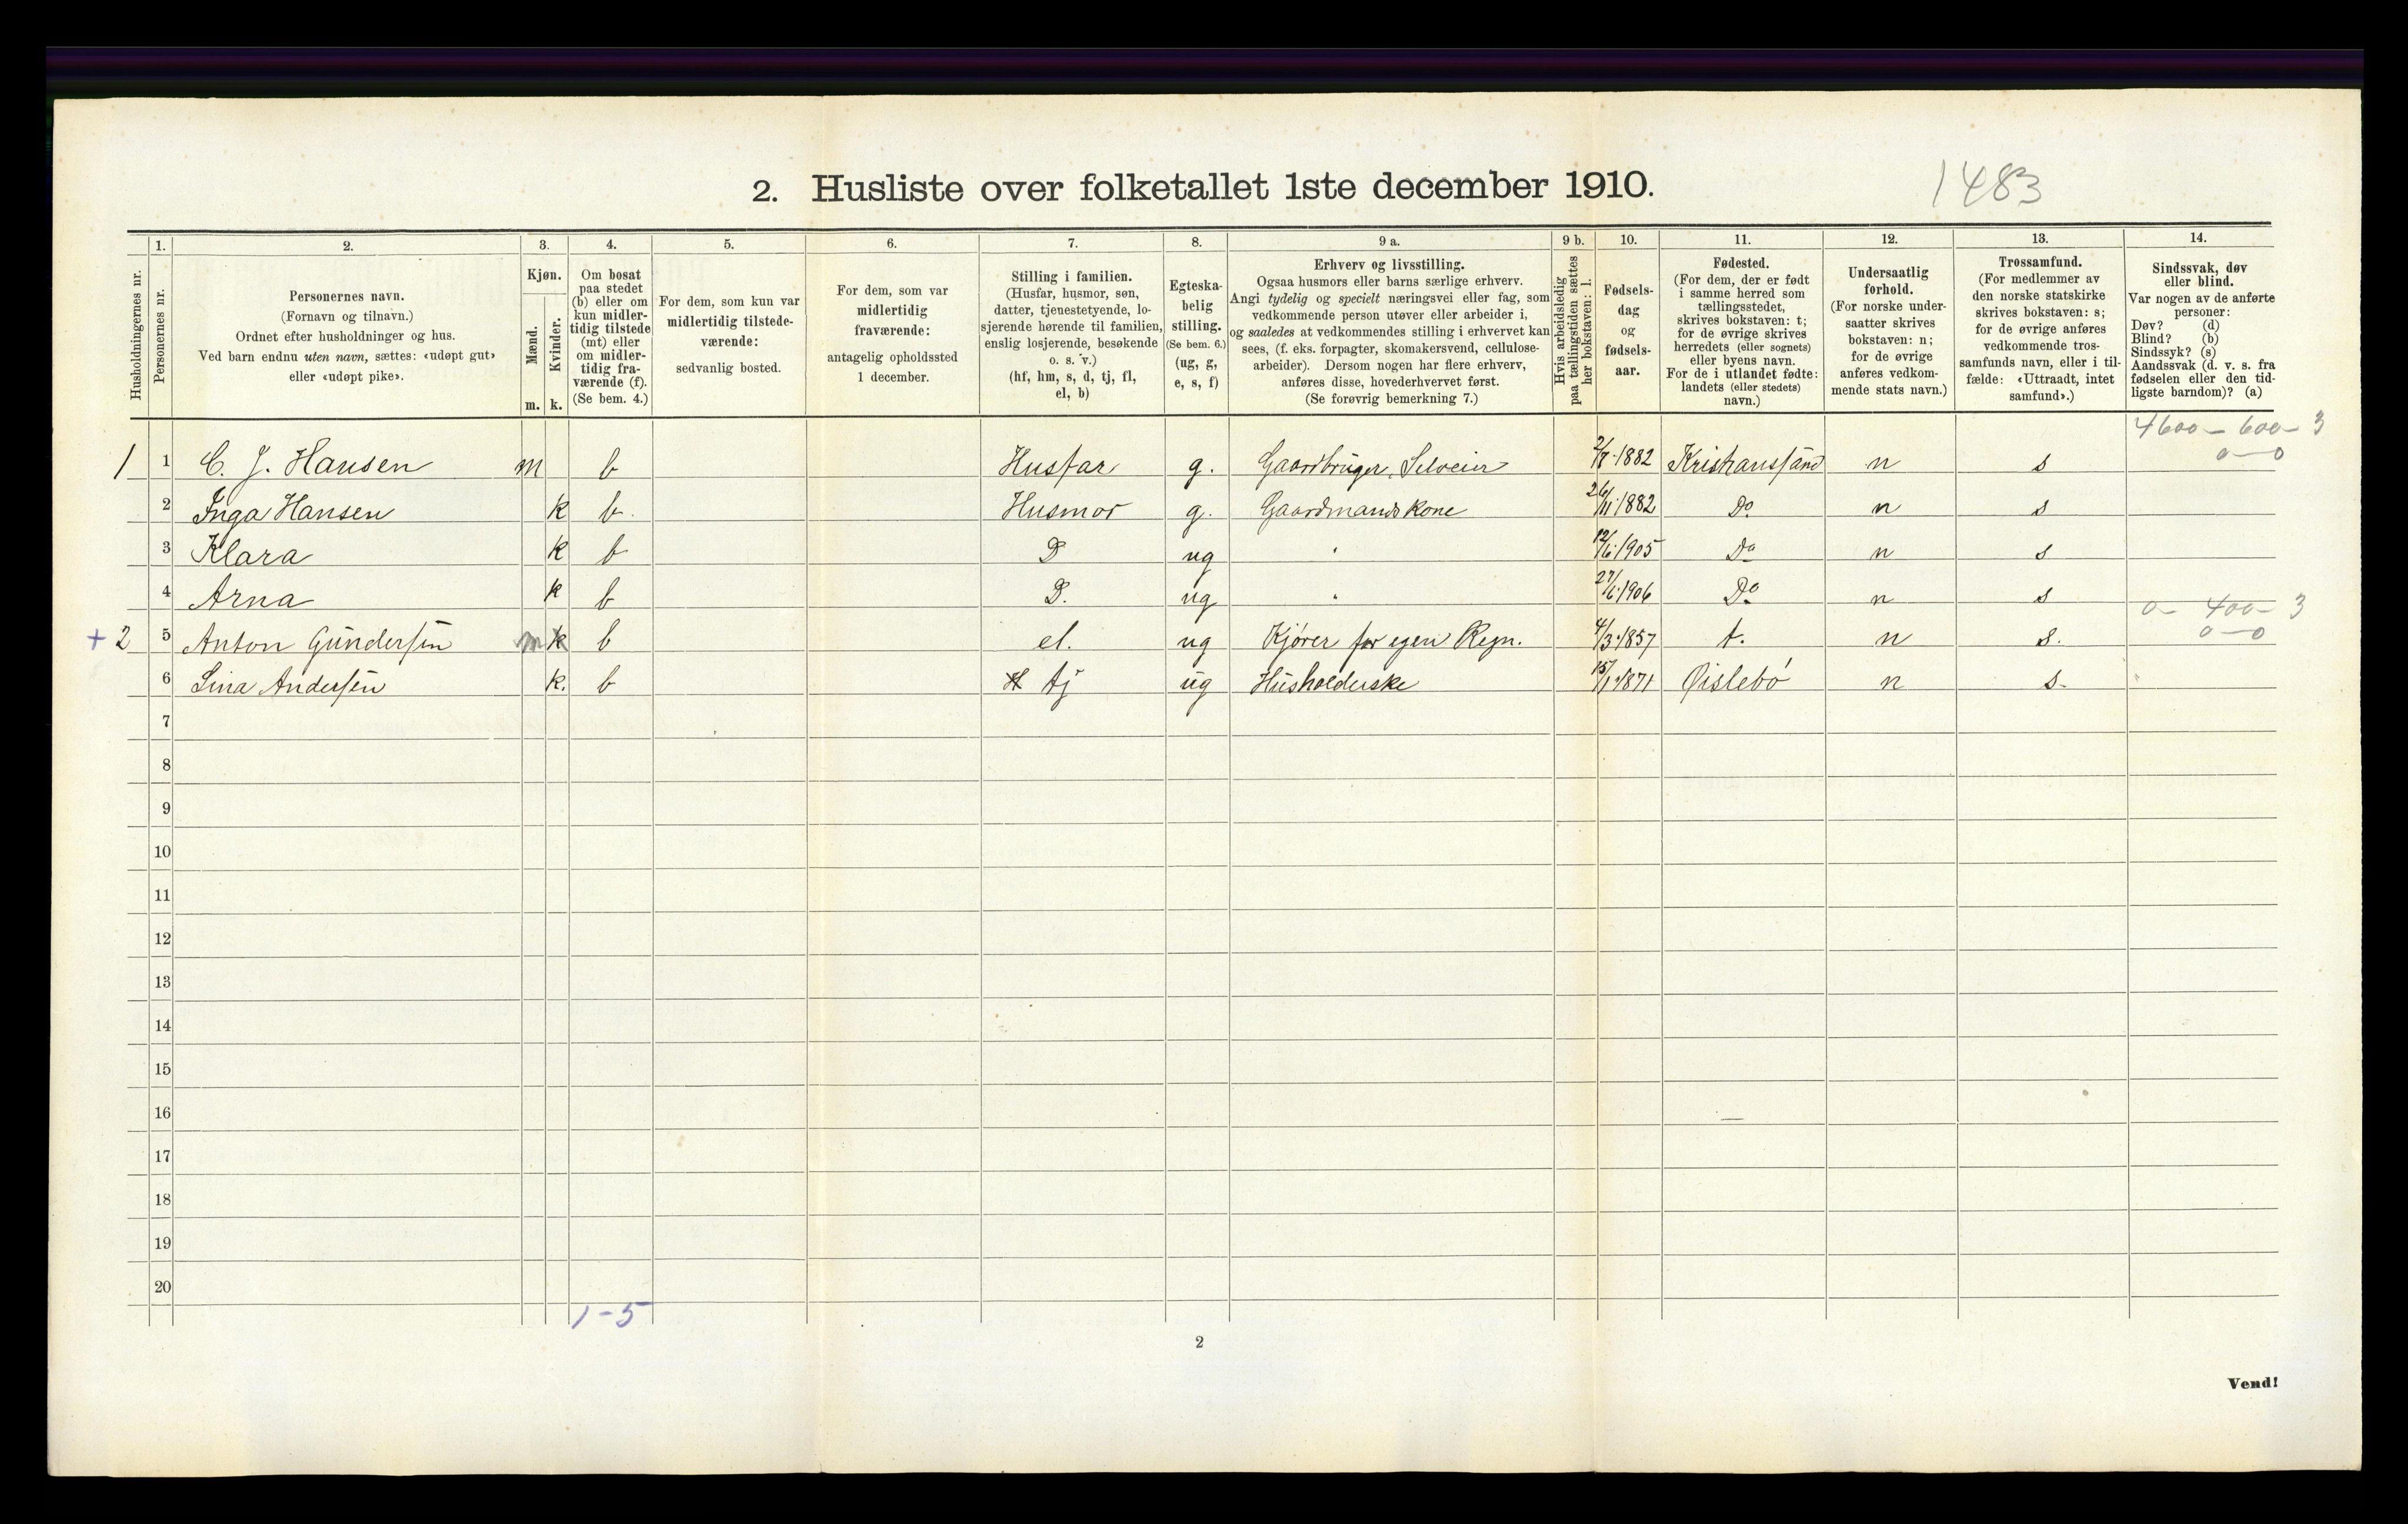 2. Husliste over folketallet 1ste december 1910.
1483
1. 2. 3. 4. 5. 6. 7. 8. 9 a. 9 b. 10. 11. 12. 13. 14.
Husholdningernes nr.
Personernes nr.
Personernes navn.
(Fornavn og tilnavn.)
Ordnet efter husholdninger og hus.
Ved barn endnu uten navn, sættes: «udøpt gut»
eller «udøpt pike».
Kjøn.
Mænd.
Kvinder.
m. k.
Om bosat
paa stedet
(b) eller om
kun midler-
tidig tilstede
(mt) eller
om midler-
tidig fra-
værende (f).
(Se bem. 4.)
For dem, som kun var
midlertidig tilstede-
værende:
sedvanlig bosted.
For dem, som var
midlertidig
fraværende:
antagelig opholdssted
1 december.
Stilling i familien.
(Husfar, husmor, søn,
datter, tjenestetyende, lo-
sjerende hørende til familien,
enslig losjerende, besøkende
o. s. v.)
(hf, hm, s, d, tj, fl,
el, b)
Egteska-
belig
stilling.
(Se bem. 6.)
(ug, g,
e, s, f)
Erhverv og livsstilling.
Ogsaa husmors eller barns særlige erhverv.
Angi tydelig og specielt næringsvei eller fag, som
vedkommende person utøver eller arbeider i,
og saaledes at vedkommendes stilling i erhvervet kan
sees, (f. eks. forpagter, skomakersvend, cellulose-
arbeider). Dersom nogen har flere erhverv,
anføres disse, hovederhvervet først.
(Se forøvrig bemerkning 7.)
Hvis arbeidsledig
paa tællingstiden sættes
her bokstaven: l.
Fødsels-
dag
og
fødsels-
aar.
Fødested.
(For dem, der er født
i samme herred som
tællingsstedet,
skrives bokstaven: t;
for de øvrige skrives
herredets (eller sognets)
eller byens navn.
For de i utlandet fødte:
landets (eller stedets)
navn.)
Undersaatlig
forhold.
(For norske under-
saatter skrives
bokstaven: n;
for de øvrige
anføres vedkom-
mende stats navn.)
Trossamfund.
(For medlemmer av
den norske statskirke
skrives bokstaven: s;
for de øvrige anføres
vedkommende tros-
samfunds navn, eller i til-
fælde: «Uttraadt, intet
samfund».)
Sindssvak, døv
eller blind.
Var nogen av de anførte
personer:
Døv? (d)
Blind? (b)
Sindssyk? (s)
Aandssvak (d. v. s. fra
fødselen eller den tid-
ligste barndom)? (a)
4600 - 600 - 3
0 - 0
1 1 C. J. Hansen m b Husfar g. Gaardbruger, Selveier 2/8 1882 Kristianssand n s
2 Inga Hansen k b. Husmor g. Gaardmandskone 26/11 1882 Do n s
3 Klara k b D ug " 12/6 1905 Do n s
4 Arna k b D. ug " 27/6 1906 Do n s
0 - 400 - 3
0 - 0
+ 2 5 Anton Gundersen m k b el. ug Kjører for egen Regn. 4/3 1857 t. n s.
6 Lina Andersen k. b H tj ug Husholderske 15/1 1871 Øislebö n s.
7
8
9
10
11
12
13
14
15
16
17
18
19
20
1-5
2
Vend!